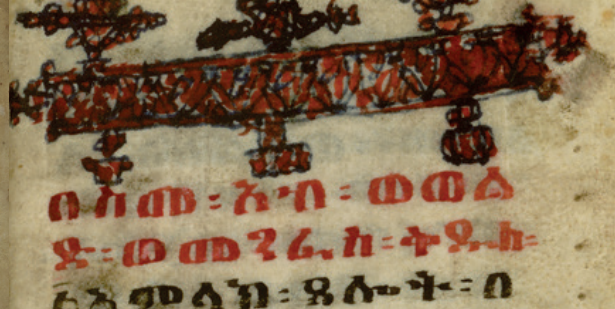 በስመ፡አብ፡ወወል
ድ፡ወመንፈስ፡ቅዱስ፡
፩አምላክ፡ጸሎት፡በ